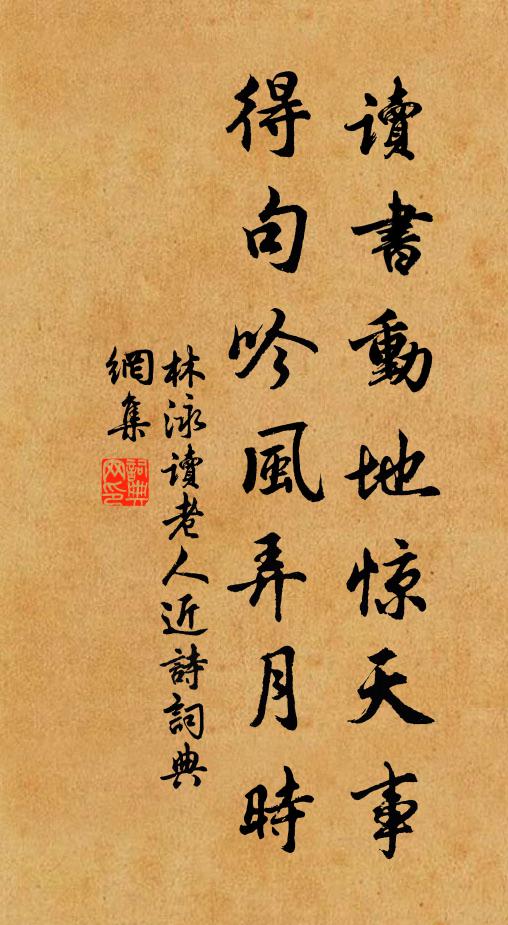 讀書動地惊天事
得句吟風弄月時
林泳讀老人近詩詞典
網集
詞典
网印